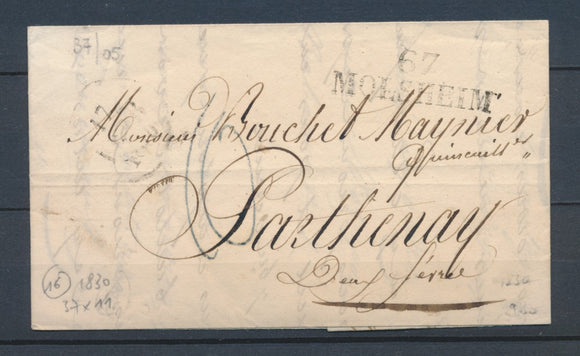 37/05
67
MOLSHEIM
Monsieur Bouchet Maynier
Quincaill.er
Parthenay
Deux Sèvres
16 1830
37 x 11
1830